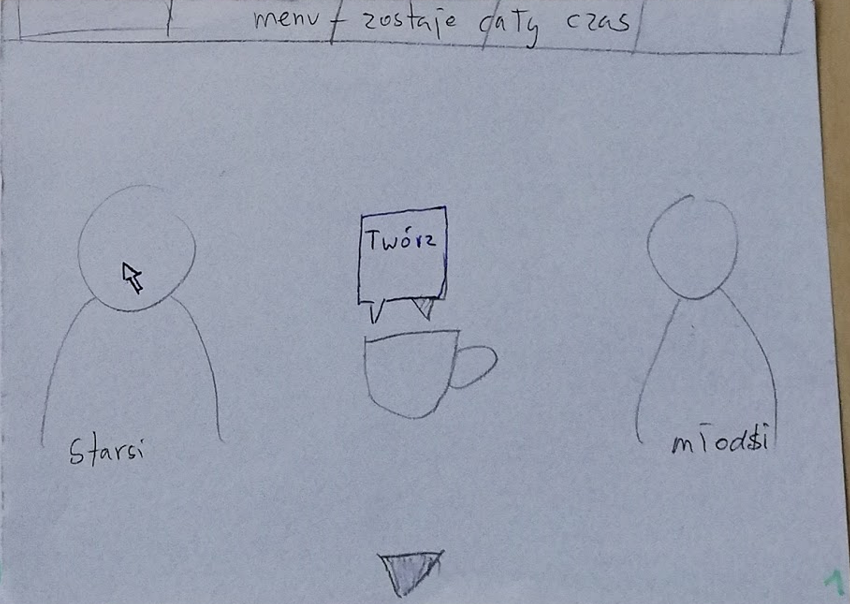 menu - zostaje cały czas
Twórz
Starsi
młodsi
1